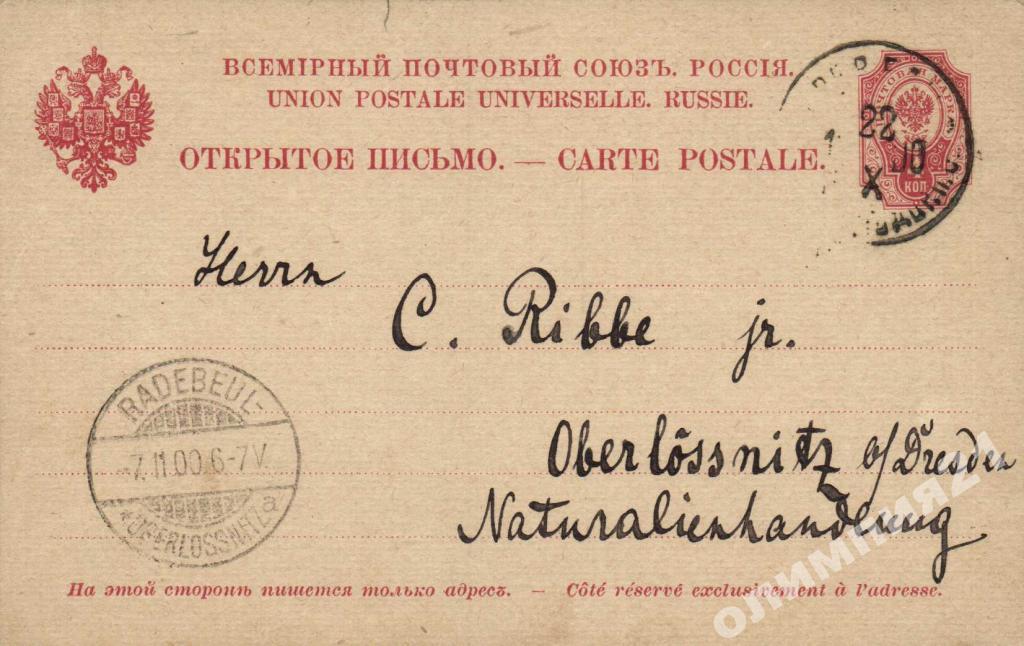 ВСЕМІРНЫЙ ПОЧТОВЫЙ СОЮЗЪ. РОССІЯ.
UNION POSTALE UNIVERSELLE. RUSSIE.
ОТКРЫТОЕ ПИСЬМО. — CARTE POSTALE.
22
X 00
КОП.
Herrn
C. Ribbe jr.
Oberlössnitz b/Dresden
Naturalienhandlung
RADEBEUL-
-7.11.00.6-7V.
*OBERLÖSSNITZ a
На этой сторонѣ пишется только адресъ. — Côté réservé exclusivement à l'adresse.
ОЛИМПИЯ21